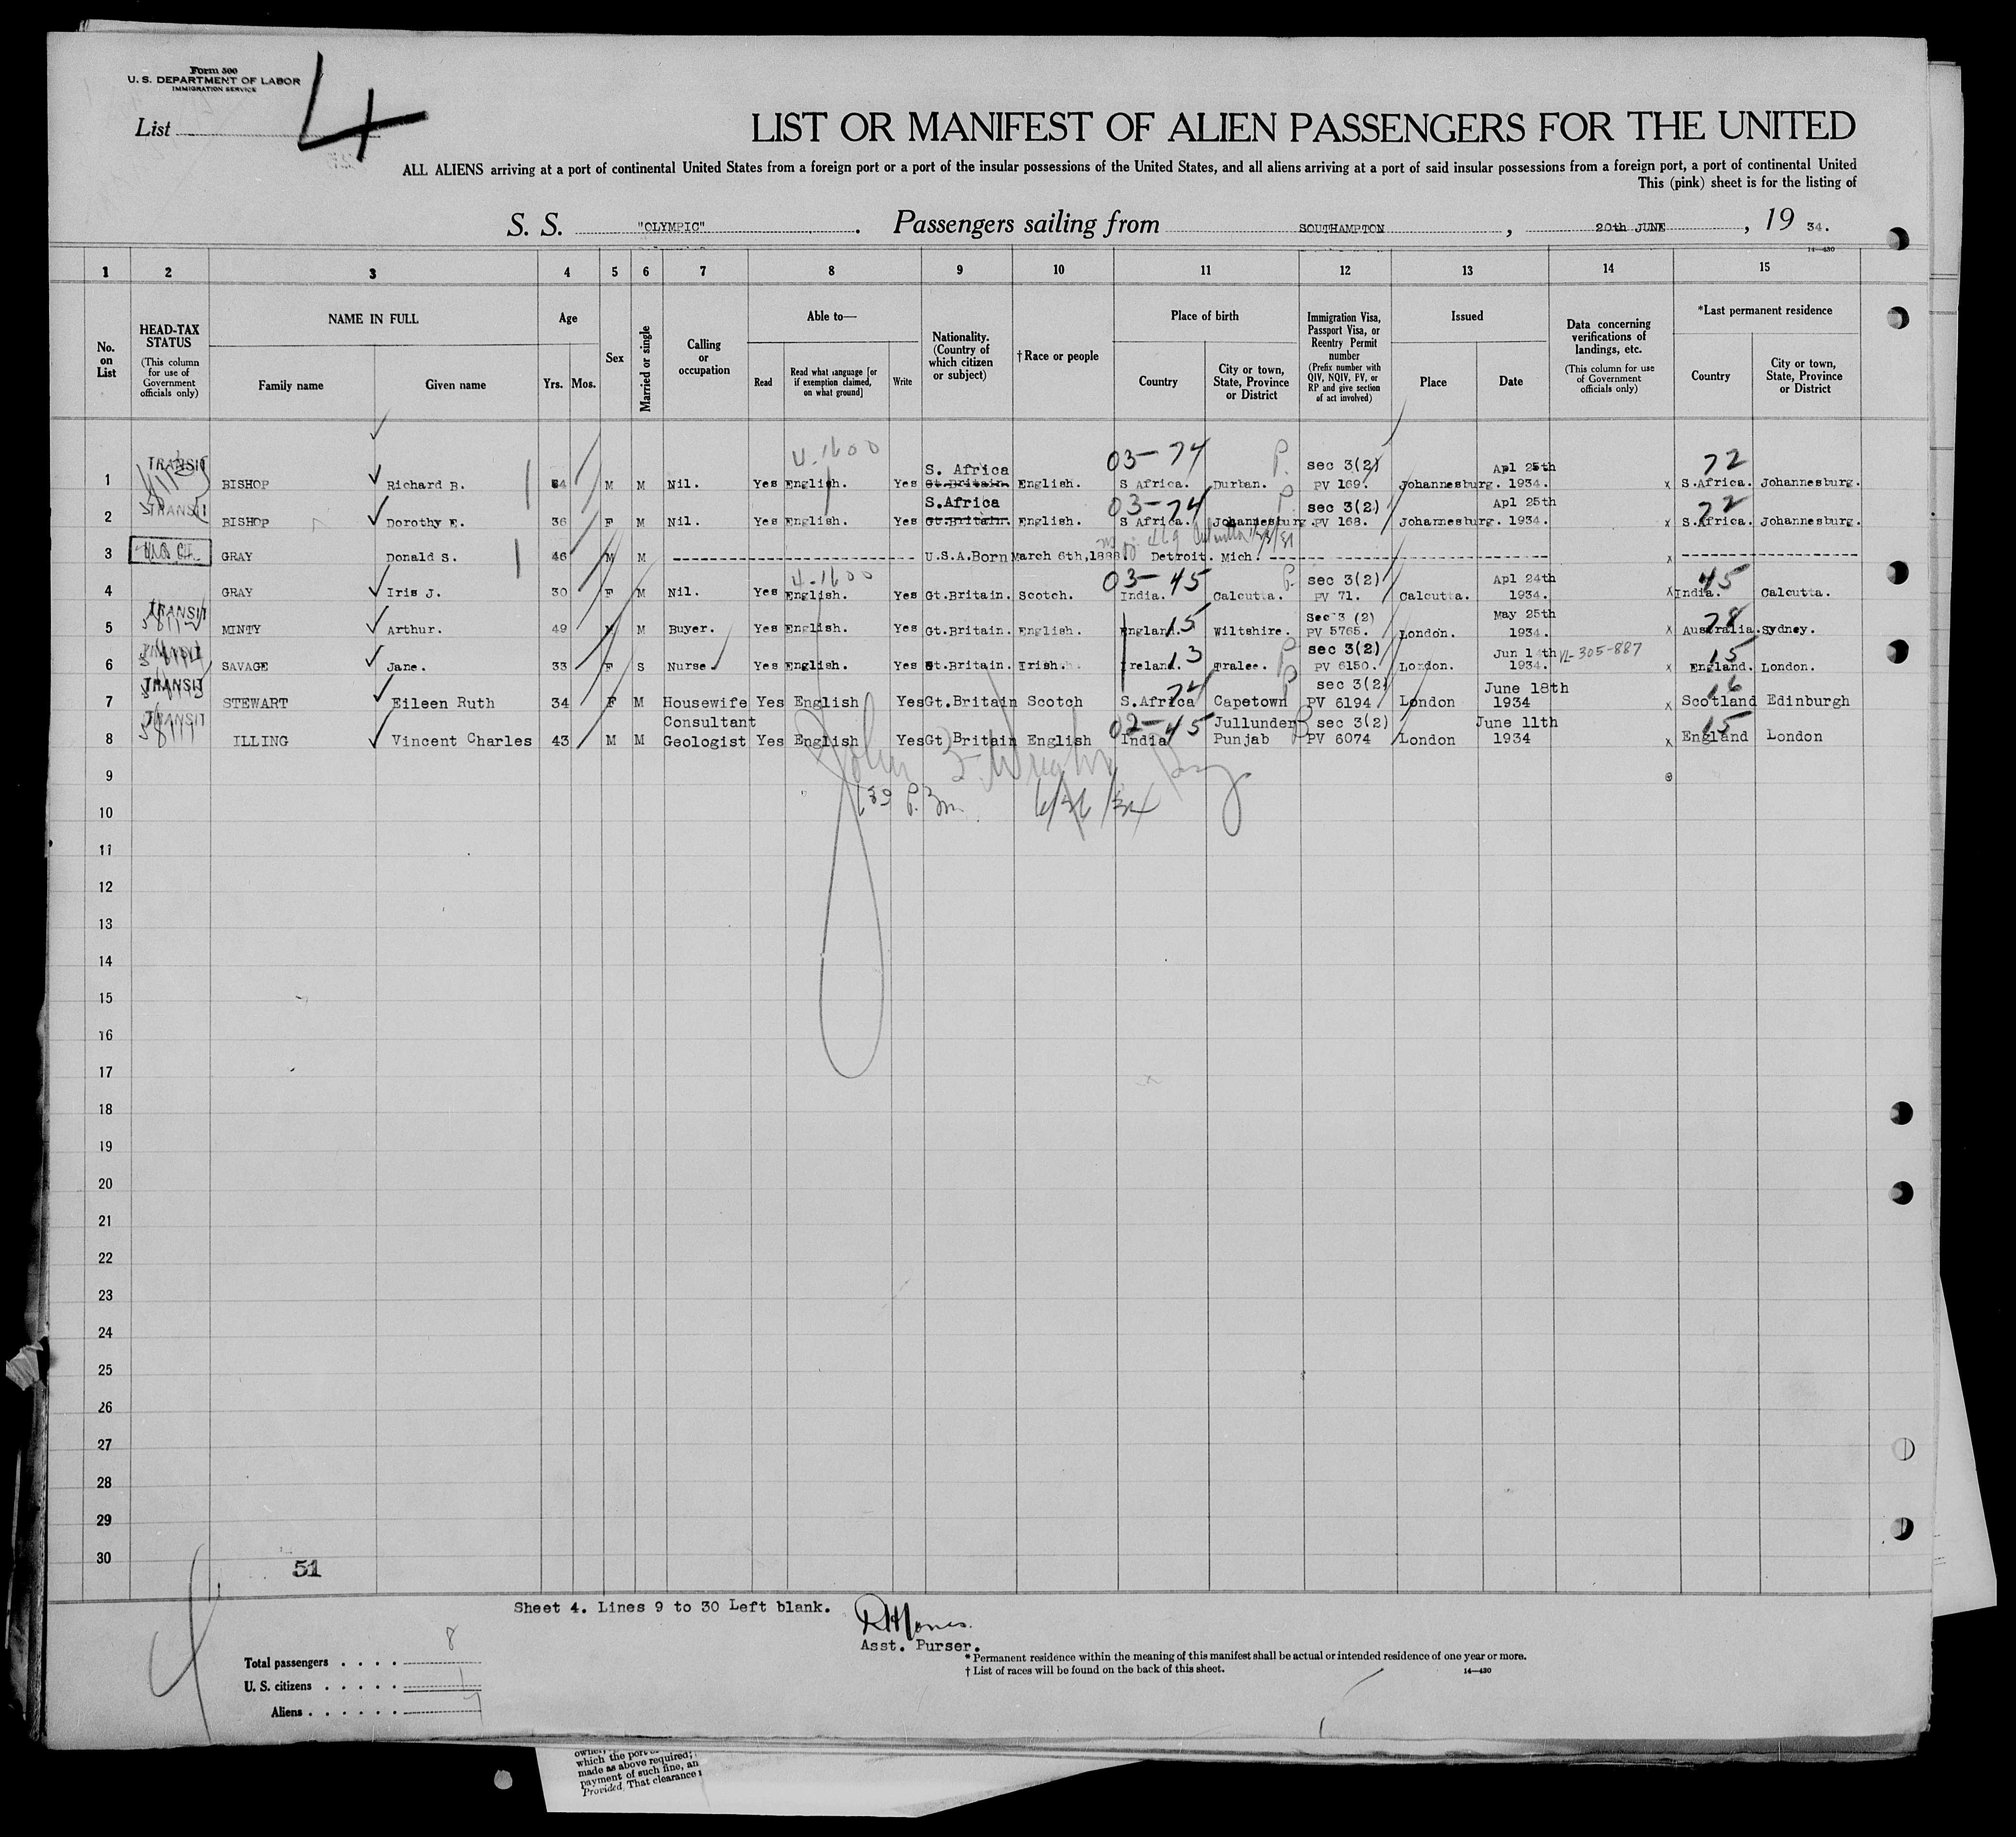 Form 500
U. S. DEPARTMENT OF LABOR
IMMIGRATION SERVICE
List 4
LIST OR MANIFEST OF ALIEN PASSENGERS FOR THE UNITED
ALL ALIENS arriving at a port of continental United States from a foreign port or a port of the insular possessions of the United States, and all aliens arriving at a port of said insular possessions from a foreign port, a port of continental United
This (pink) sheet is for the listing of
S. S. "OLYMPIC". Passengers sailing from SOUTHAMPTON, 20th JUNE, 19 34.
14—430
1 2 3 4 5 6 7 8 9 10 11 12 13 14 15
No. on List
HEAD-TAX STATUS (This column for use of Government officials only)
NAME IN FULL
Family name
Given name
Age
Yrs. Mos.
Sex
Married or single
Calling or occupation
Able to—
Read
Read what language [or if exemption claimed, on what ground]
Write
Nationality. (Country of which citizen or subject)
†Race or people
Place of birth
Country
City or town, State, Province or District
Immigration Visa, Passport Visa, or Reentry Permit number (Prefix number with QIV, NQIV, PV, or RP and give section of act involved)
Issued
Place
Date
Data concerning verifications of landings, etc. (This column for use of Government officials only)
*Last permanent residence
Country
City or town, State, Province or District
4-1600 03-74 P. 72
TRANSIT S. Africa sec 3(2) Apl 25th
1 BISHOP Richard B. 54 M M Nil. Yes English. Yes Gt.Britain. English. S Africa. Durban. PV 169. Johannesburg. 1934. x S.Africa. Johannesburg.
TRANSIT S.Africa 03-74 P sec 3(2) Apl 25th 72
2 BISHOP Dorothy E. 36 F M Nil. Yes English. Yes Gt.Britain. English. S Africa. Johannesburg. PV 168. Johannesburg. 1934. x S.Africa. Johannesburg.
3 GRAY Donald S. 46 M M U.S.A.Born March 6th,1888 Detroit. Mich. x
4-1600 03-45 P. sec 3(2) Apl 24th 45
4 GRAY Iris J. 30 F M Nil. Yes English. Yes Gt.Britain. Scotch. India. Calcutta. PV 71. Calcutta. 1934. x India. Calcutta.
TRANSIT 15 Sec 3 (2) May 25th 78
5 MINTY Arthur. 49 M M Buyer. Yes English. Yes Gt.Britain. English. England. Wiltshire. PV 5765. London. 1934. x Australia. Sydney.
TRANSIT 13 P sec 3(2) Jun 14th VL-305-887 15
6 SAVAGE Jane. 33 F S Nurse. Yes English. Yes Gt.Britain. Irish. Ireland. Tralee. PV 6150. London. 1934. x England. London.
TRANSIT 74 P sec 3(2) June 18th 16
7 STEWART Eileen Ruth 34 F M Housewife Yes English Yes Gt.Britain Scotch S.Africa Capetown PV 6194 London 1934 x Scotland Edinburgh
TRANSIT Consultant 02-45 Jullunder P sec 3(2) June 11th 15
8 ILLING Vincent Charles 43 M M Geologist Yes English Yes Gt Britain English India Punjab PV 6074 London 1934 x England London
9
10
11
12
13
14
15
16
17
18
19
20
21
22
23
24
25
26
27
28
29
30
51
Sheet 4. Lines 9 to 30 Left blank.
Asst. Purser.
* Permanent residence within the meaning of this manifest shall be actual or intended residence of one year or more.
† List of races will be found on the back of this sheet.
14—430
Total passengers . . . . 8
U. S. citizens . . . . . 1
Aliens . . . . . . 7
which the port
made as above required;
payment of such fine, an
Provided, That clearance